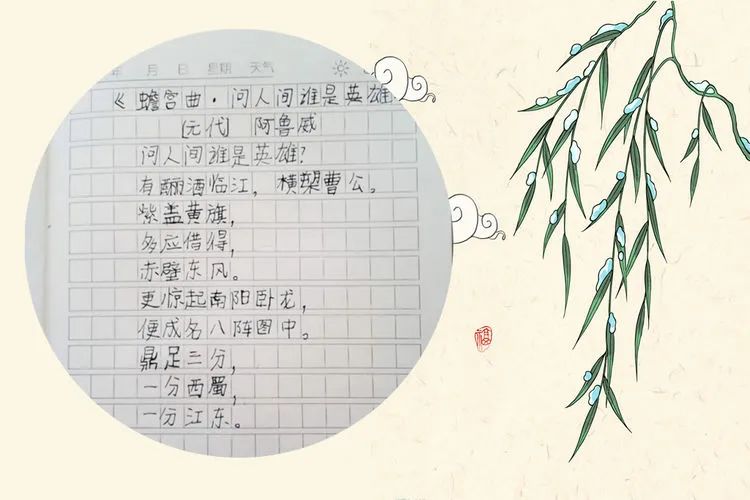 年 月 日 星期 天气
《蟾宫曲·问人间谁是英雄
[元代] 阿鲁威
问人间谁是英雄?
有酾酒临江,横槊曹公。
紫盖黄旗,
多应借得,
赤壁东风。
更惊起南阳卧龙,
便成名八阵图中。
鼎足三分,
一分西蜀,
一分江东。
福